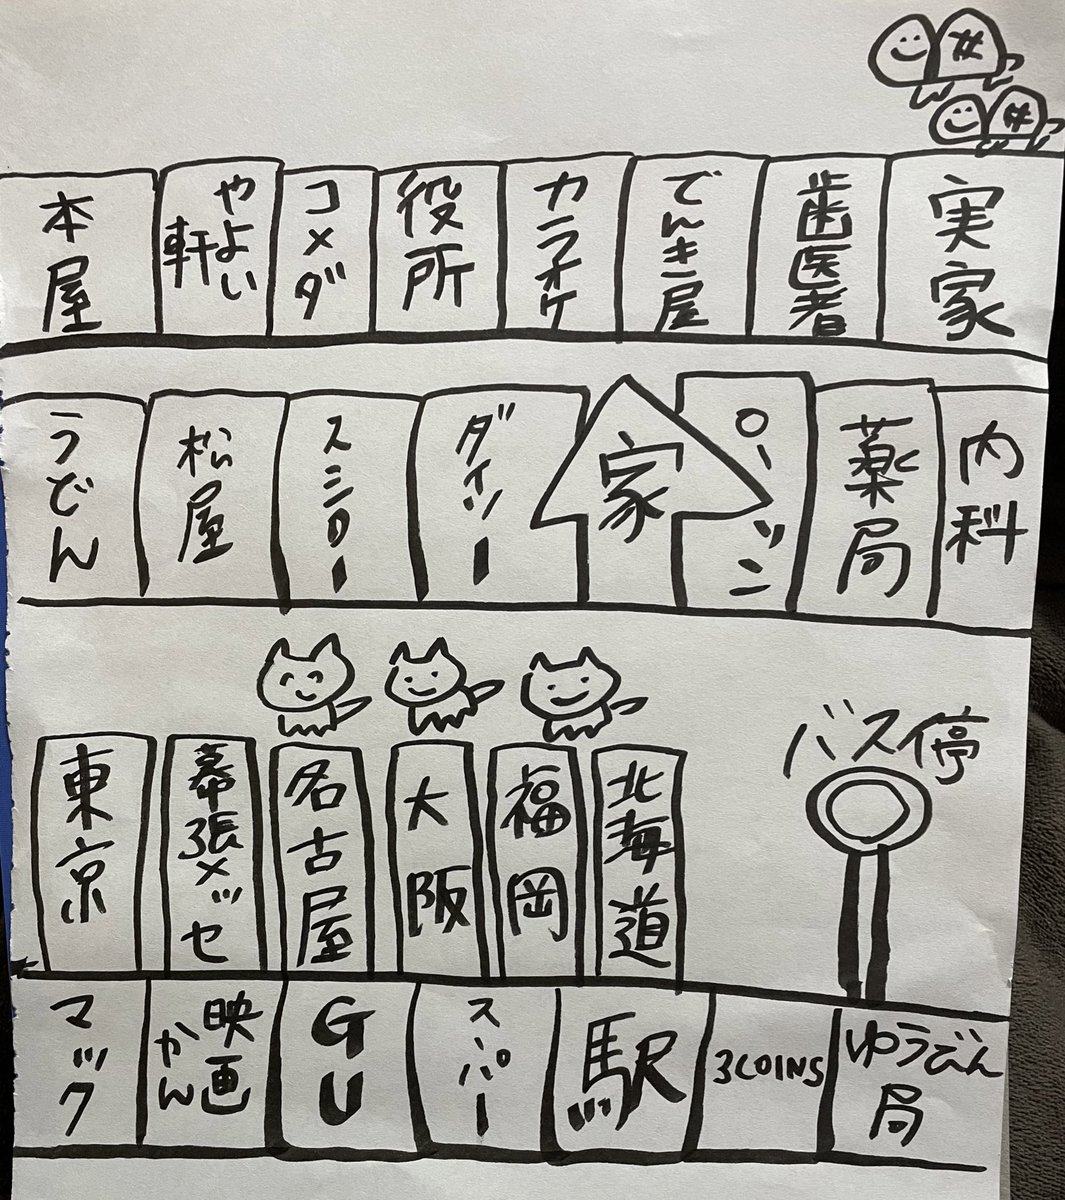 本屋
やよい軒
コメダ
役所
カラオケ
でんき屋
歯医者
実家
うどん
松屋
スシロー
ダイソー
家
パーッン
薬局
内科
バス停
東京
幕張メッセ
名古屋
大阪
福岡
北海道
マック
映画かん
GU
スーパー
駅
3COINS
ゆうびん局